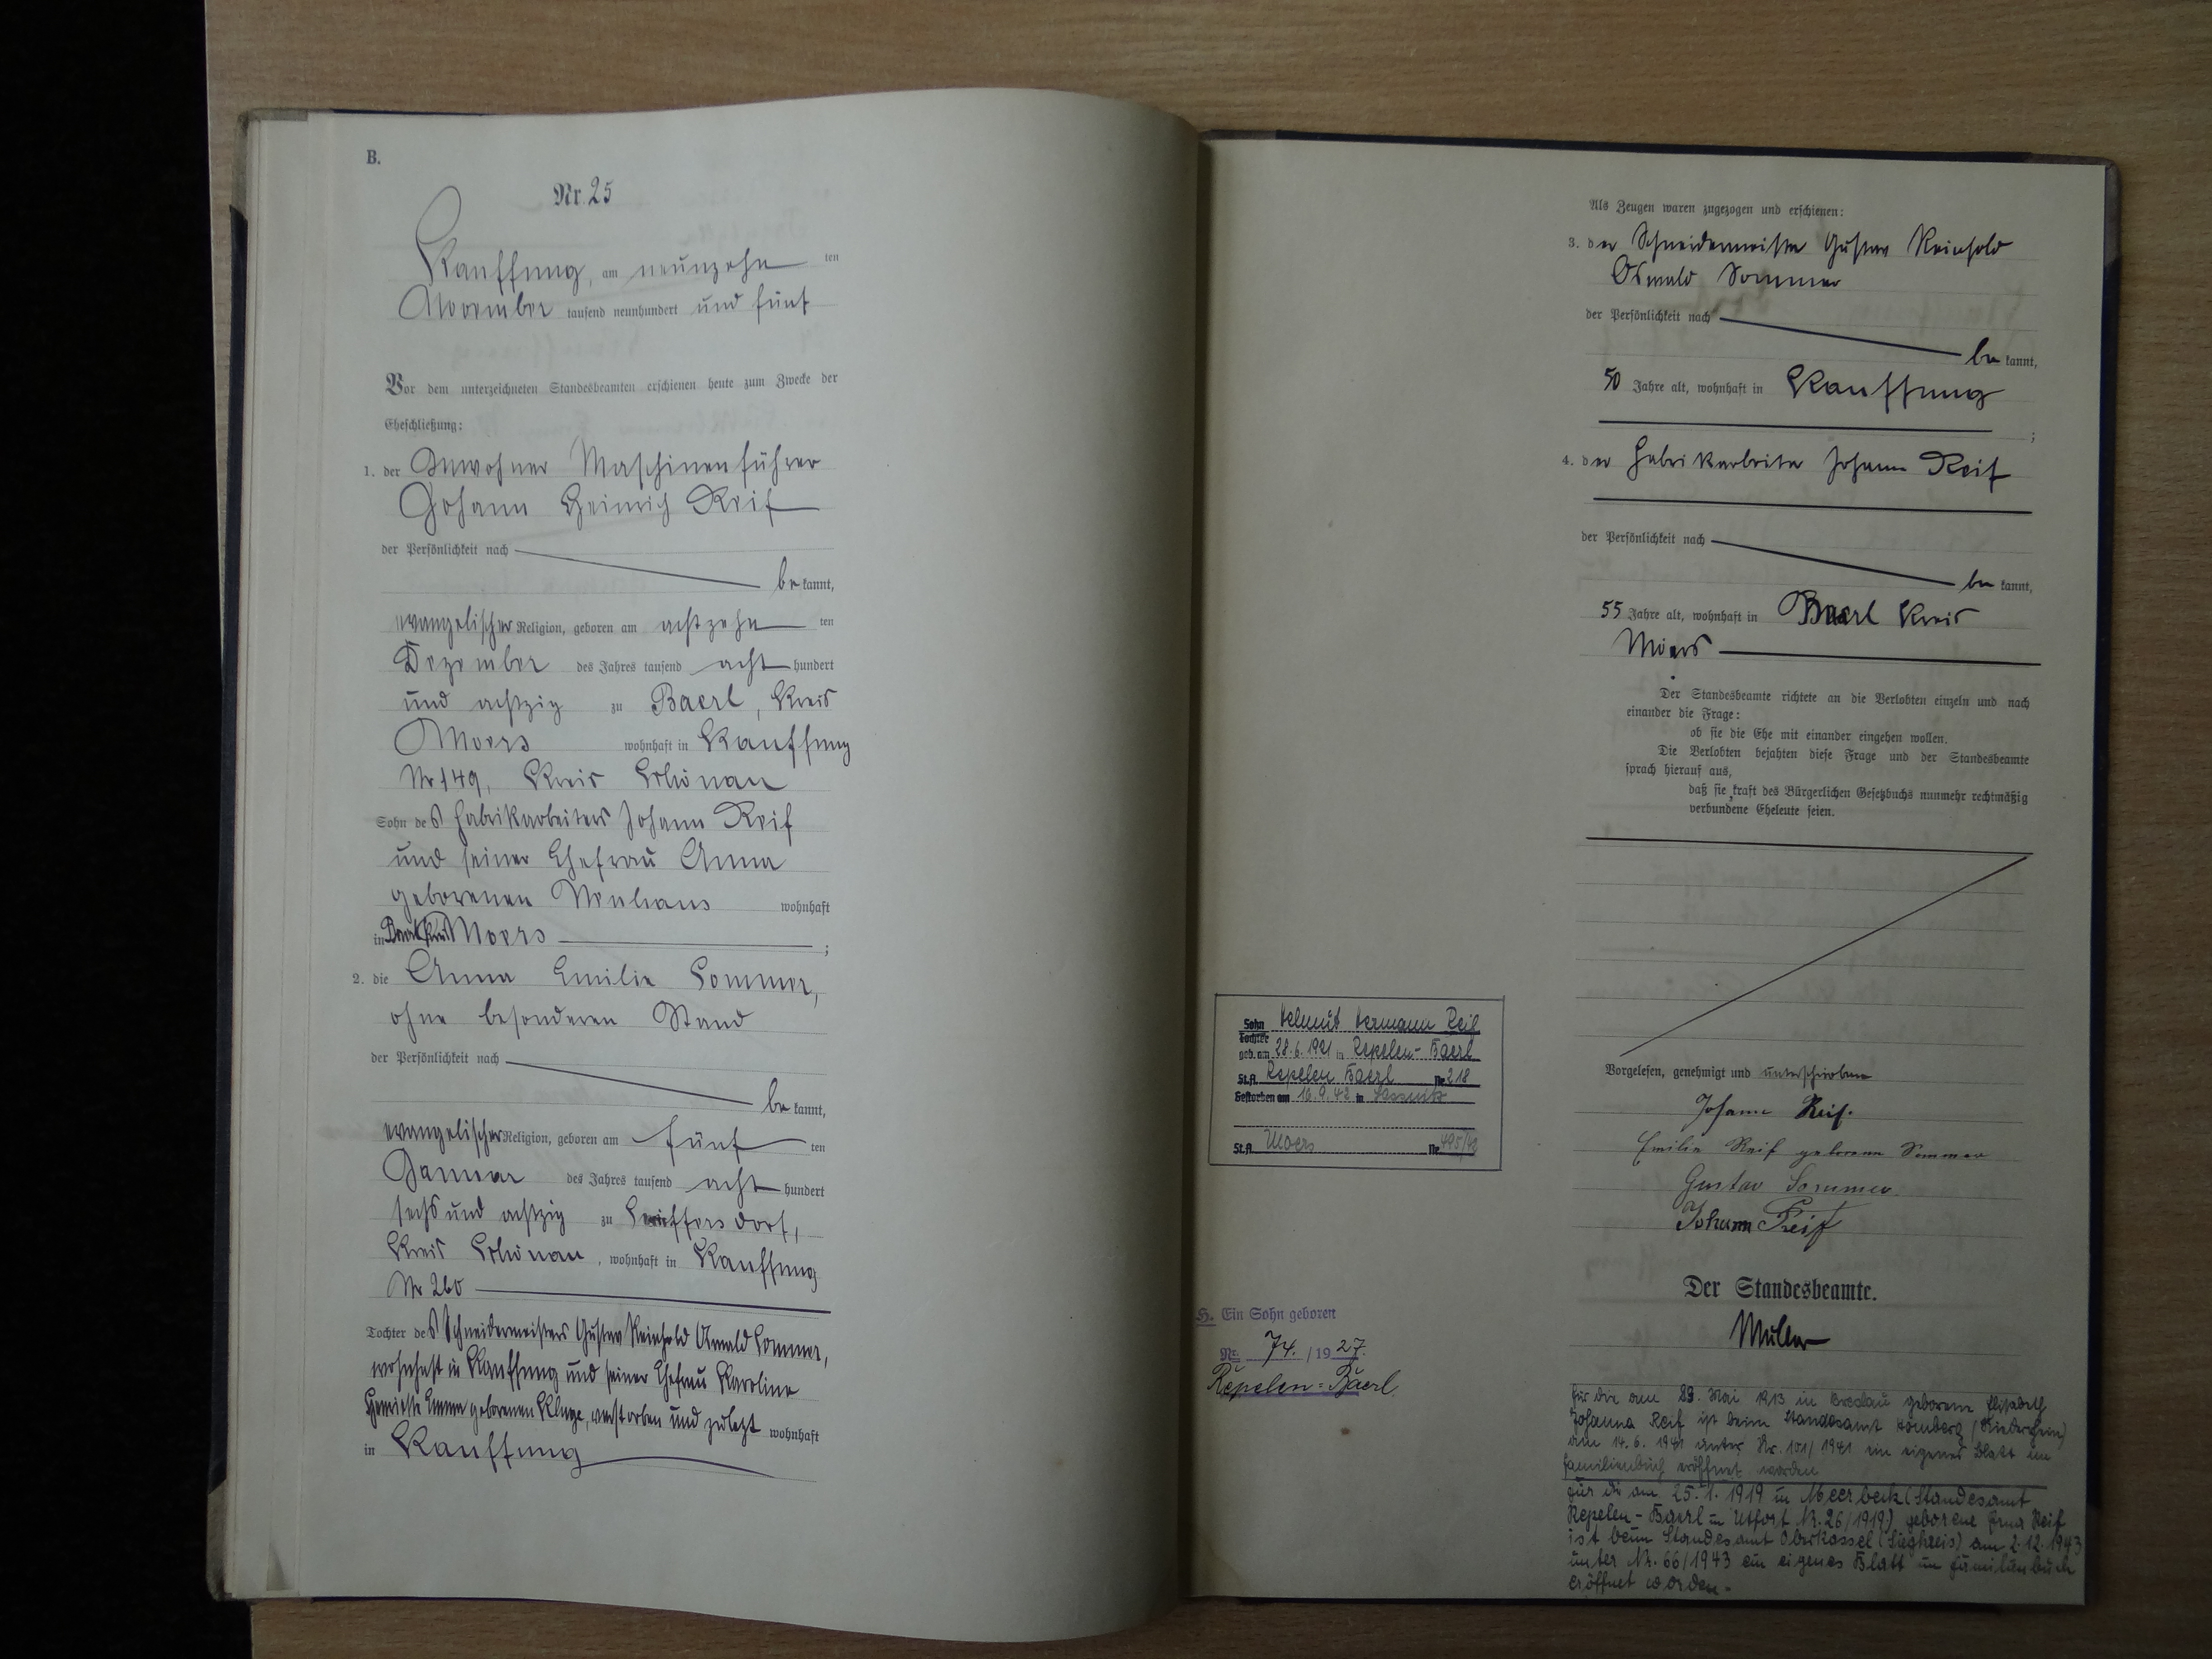 B.
Nr. 25
Kauffung, am neunzehn ten
November tausend neunhundert und fünf
Vor dem unterzeichneten Standesbeamten erschienen heute zum Zwecke der
Eheschließung:
1. der Inwohner Maschinenführer
Johann Heinrich Reif
der Persönlichkeit nach
be kannt,
evangelischer Religion, geboren am achtzehn ten
Dezember des Jahres tausend acht hundert
und achtzig zu Baerl, Kreis
Moers wohnhaft in Kauffung
Nr 149, Kreis Schönau
Sohn des Fabrikarbeiters Johann Reif
und seiner Ehefrau Anna
geborenen Neuhaus wohnhaft
in Moers ;
2. die Anna Emilie Sommer,
ohne besonderen Stand
der Persönlichkeit nach
be kannt,
evangelischer Religion, geboren am fünf ten
Januar des Jahres tausend acht hundert
sechs und achtzig zu
Kreis Schönau, wohnhaft in Kauffung
Nr 260
Tochter des Schneidermeisters Gustav Reinhold Oswald Sommer,
wohnhaft in Kauffung und seiner Ehefrau Karoline
geborenen Kluge, verstorben und zuletzt wohnhaft
in Kauffung
Als Zeugen waren zugezogen und erschienen:
3. der Schneidermeister Gustav Reinhold
Oswald Sommer
der Persönlichkeit nach
be kannt,
50 Jahre alt, wohnhaft in Kauffung
;
4. der Fabrikarbeiter Johann Reif
der Persönlichkeit nach
be kannt,
55 Jahre alt, wohnhaft in Baerl Kreis
Moers
Der Standesbeamte richtete an die Verlobten einzeln und nach
einander die Frage:
ob sie die Ehe mit einander eingehen wollen.
Die Verlobten bejahten diese Frage und der Standesbeamte
sprach hierauf aus,
daß sie kraft des Bürgerlichen Gesetzbuchs nunmehr rechtmäßig
verbundene Eheleute seien.
Vorgelesen, genehmigt und unterschrieben
Johann Reif.
Emilie Reif geborene Sommer
Gustav Sommer
Johann Reif
Der Standesbeamte.
Müller
Sohn Helmut Hermann Reif
Tochter
geb. am 28.6.1921 in Repelen-Baerl
St.A. Repelen Baerl Nr. 218
Gestorben am 16.9.42 in
St.A. Moers Nr. 495/42
H. Ein Sohn geboren
Nr. 74. / 19 27.
Repelen-Baerl
Für die am 23. Mai 1913 in Breslau geborene Elisabeth
Johanna Reif ist beim Standesamt Homberg (Niederrhein)
am 14.6.1941 unter Nr. 101/1941 ein eigenes Blatt im
Familienbuch eröffnet worden
Für die am 25.1.1919 in Meerbeck (Standesamt
Repelen-Baerl in Utfort Nr. 26/1919) geborene Erna Reif
ist beim Standesamt Oberkassel (Siegkreis) am 2.12.1943
unter Nr. 66/1943 ein eigenes Blatt im Familienbuch
eröffnet worden.